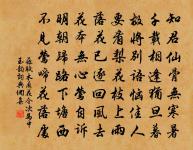 知君仙骨無寒暑
千載相逢猶旦暮
故將別語惱佳人
要看梨花枝上雨
落花已逐回風去
花本無心鶯自訴
明朝歸路下塘西
不見鶯啼花落處
蘇軾木蘭花令次馬中
玉韻詞典網集